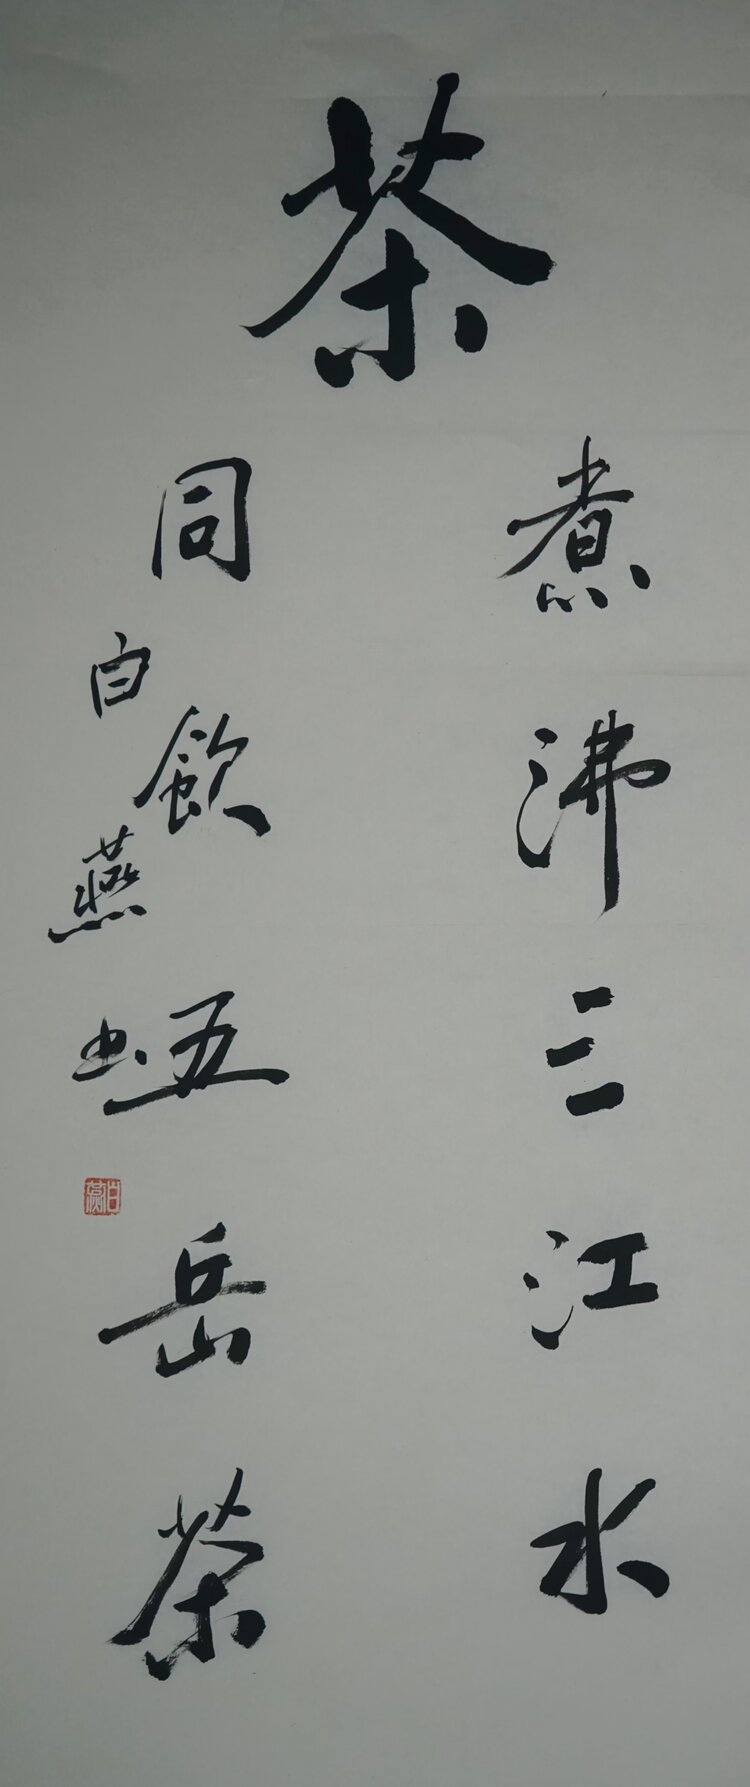 茶
煮沸三江水
同飲五岳茶
白燕书
白燕